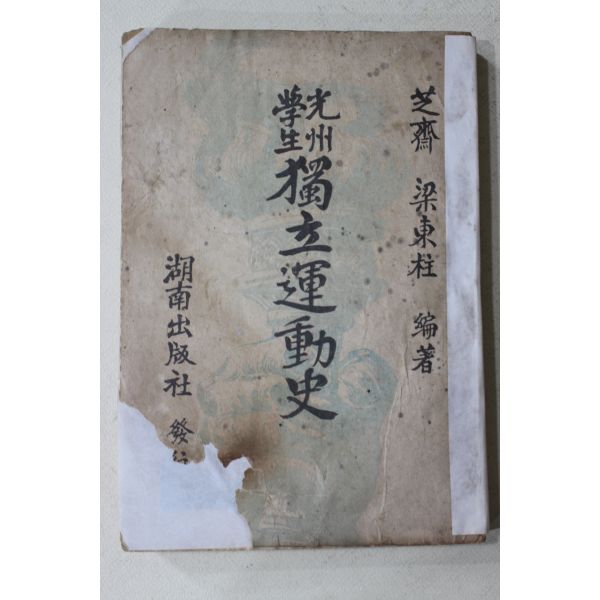 芝齋 梁東柱 編著
光州
學生
獨立運動史
湖南出版社 發